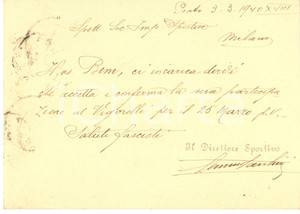 Prato 3.3.1940 XVIII
Spett. Soc. Imp. Sportivi
Milano
Bini, ci incarica dirvi
che accetta e conferma la sua partecipa
zione al Vigorelli per il 25 Marzo p.v.
Saluti fascisti
Il Direttore Sportivo